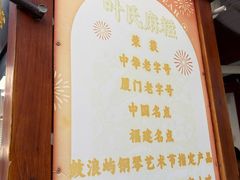 叶氏麻糍
荣获
中华老字号
厦门老字号
中国名点
福建名点
鼓浪屿钢琴艺术节指定产品